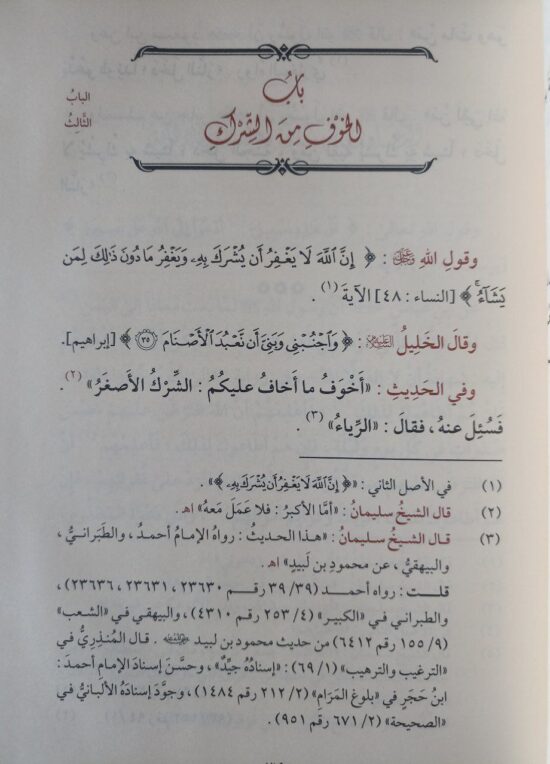 بابُ
الخَوْفِ مِنَ الشِّرْكِ
البابُ
الثَّالِثُ
وقولِ اللهِ ﷿ : ﴿ إِنَّ ٱللَّهَ لَا يَغْفِرُ أَن يُشْرَكَ بِهِۦ وَيَغْفِرُ مَا دُونَ ذَٰلِكَ لِمَن
يَشَآءُۚ ﴾ [النساء : ٤٨] الآيةَ (١) .
وقالَ الخَلِيلُ : ﴿ وَٱجْنُبْنِى وَبَنِىَّ أَن نَّعْبُدَ ٱلْأَصْنَامَ ۝٣٥ ﴾ [إبراهيم].
وفي الحَدِيثِ : «أَخْوَفُ ما أَخافُ عليكُمُ : الشِّرْكُ الأَصغَرُ» (٢) .
فَسُئِلَ عنهُ ، فقالَ : «الرِّياءُ» (٣) .
(١) في الأصل الثاني : «﴿ إِنَّ ٱللَّهَ لَا يَغْفِرُ أَن يُشْرَكَ بِهِۦ ﴾» .
(٢) قال الشيخُ سليمانُ : «أمَّا الأكبرُ : فلا عَمَلَ مَعهُ» اهـ .
(٣) قـال الشيـخُ سليمـانُ : «هـذا الحديـثُ : رواهُ الإمـامُ أحمـدُ ، والطَّبَرانـيُّ ،
والبيهقيُّ ، عن محمودِ بن لَبيدٍ» اهـ .
قلـت : رواه أحمـد (٣٩/ ٣٩ رقـم ٢٣٦٣٠ ، ٢٣٦٣١ ، ٢٣٦٣٦) ،
والطبراني في «الكبير» (٤/ ٢٥٣ رقم ٤٣١٠) ، والبيهقي في «الشعب»
(٩/ ١٥٥ رقم ٦٤١٢) من حديث محمود بن لبيد . قال المُنذِرِيُّ في
«الترغيب والترهيب» (١/ ٦٩) : «إسنادُهُ جيِّدٌ» ، وحسَّنَ إسنادَ الإمامِ أحمدَ :
ابنُ حَجَرٍ في «بلوغ المَرَامِ» (٢/ ٢١٢ رقم ١٤٨٤) ، وجوَّدَ إسنادَهُ الألبانيُّ في
«الصحيحة» (٢/ ٦٧١ رقم ٩٥١) .